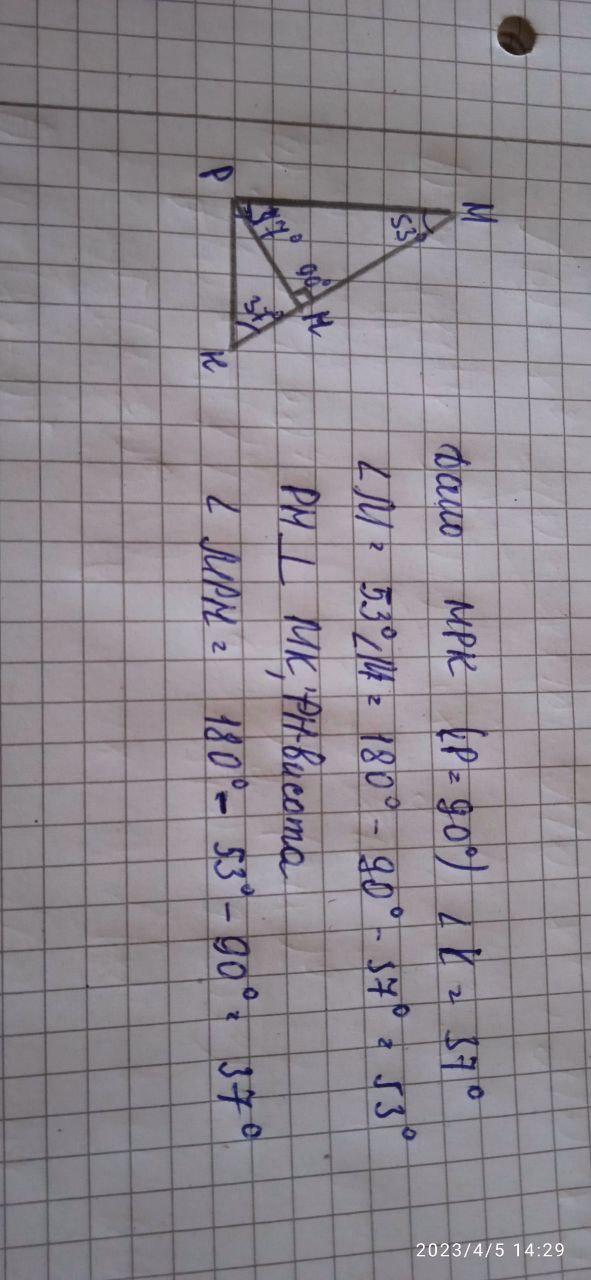 M
53°
37°
90°
H
P
37°
K
дано МРК (∠P = 90°) ∠K = 37°
∠M = 53° ∠M = 180° - 90° - 37° = 53°
PH ⊥ МК, PH-висота
∠ МРН = 180° - 53° - 90° = 37°
2023/4/5 14:29